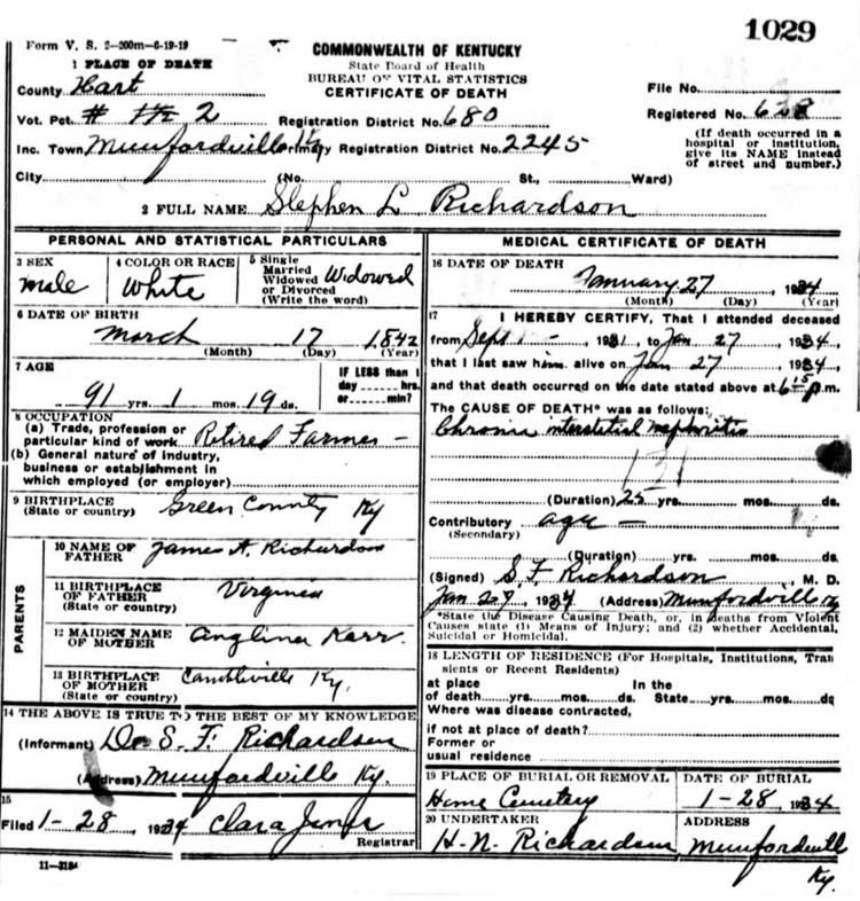 1029
Form V. S. 2-200m-6-19-19
COMMONWEALTH OF KENTUCKY
State Board of Health
BUREAU OF VITAL STATISTICS
CERTIFICATE OF DEATH
1 PLACE OF DEATH
County Hart
File No.
Vot. Pct. # 2
Registration District No. 680
Registered No.
Inc. Town Munfordville Ky
Primary Registration District No. 2245
(If death occurred in a hospital or institution, give its NAME instead of street and number.)
City (No. St., Ward)
2 FULL NAME Stephen L Richardson
PERSONAL AND STATISTICAL PARTICULARS
3 SEX male
4 COLOR OR RACE White
5 Single Married Widowed or Divorced (Write the word) Widowed
6 DATE OF BIRTH
March 17 1842
(Month) (Day) (Year)
7 AGE
91 yrs. 1 mos. 19 ds.
IF LESS than 1 day hrs. or min?
8 OCCUPATION
(a) Trade, profession or particular kind of work Retired Farmer -
(b) General nature of industry, business or establishment in which employed (or employer)
9 BIRTHPLACE (State or country) Green County Ky
PARENTS
10 NAME OF FATHER James A. Richardson
11 BIRTHPLACE OF FATHER (State or country) Virginia
12 MAIDEN NAME OF MOTHER Angline Karr.
13 BIRTHPLACE OF MOTHER (State or country) Ky.
14 THE ABOVE IS TRUE TO THE BEST OF MY KNOWLEDGE
(Informant) Dr S. F. Richardson
(Address) Munfordville Ky.
15
Filed 1-28, 1934 Clara Jones
Registrar
11-3184
MEDICAL CERTIFICATE OF DEATH
16 DATE OF DEATH
January 27, 1934
(Month) (Day) (Year)
17 I HEREBY CERTIFY, That I attended deceased
from Sept 1 -, 1931, to Jan 27, 1934,
that I last saw him alive on Jan 27, 1934,
and that death occurred on the date stated above at 6 15 p.m.
The CAUSE OF DEATH* was as follows:
Chronic interstitial nephritis
131
(Duration) 25 yrs. mos. ds.
Contributory age -
(Secondary)
(Duration) yrs. mos. ds.
(Signed) S. F. Richardson, M. D.
Jan 29, 1934 (Address) Munfordville Ky
*State the Disease Causing Death, or, in deaths from Violent Causes state (1) Means of Injury; and (2) whether Accidental, Suicidal or Homicidal.
18 LENGTH OF RESIDENCE (For Hospitals, Institutions, Transients or Recent Residents)
at place of death yrs. mos. ds. In the State yrs. mos. ds
Where was disease contracted,
if not at place of death?
Former or
usual residence
19 PLACE OF BURIAL OR REMOVAL
Home Cemetery
DATE OF BURIAL
1-28 1934
20 UNDERTAKER
H. N. Richardson
ADDRESS
Munfordvill
Ky.